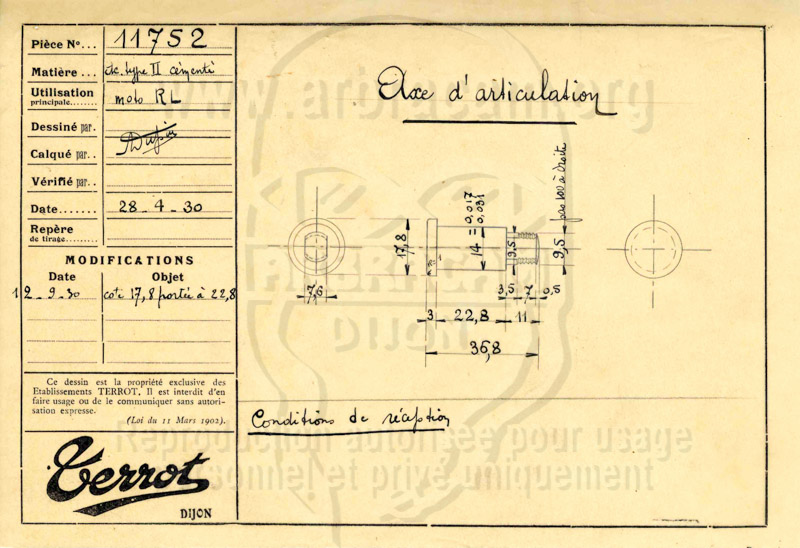 Pièce Nº... 11752
Matière... ac. type II cémenté
Utilisation
principale....... moto RL
Dessiné par. Dupin
Calqué par..
Vérifié par..
Date....... 28_4_30
Repère
de tirage........
MODIFICATIONS
Date Objet
1 2_9_30 cote 17,8 portée à 22,8
Ce dessin est la propriété exclusive des
Etablissements TERROT. Il est interdit d'en
faire usage ou de le communiquer sans autori-
sation expresse.
(Loi du 11 Mars 1902).
Terrot
DIJON
www. .org
Axe d'articulation
pas 100 à droite
17,8
14 = 0,017
0,031
9,5
9,5
1
7,6
3,5 7 0,5
3 22,8 11
36,8
DIJON
Conditions de réception
Reproduction autorisée pour usage
personnel et privé uniquement